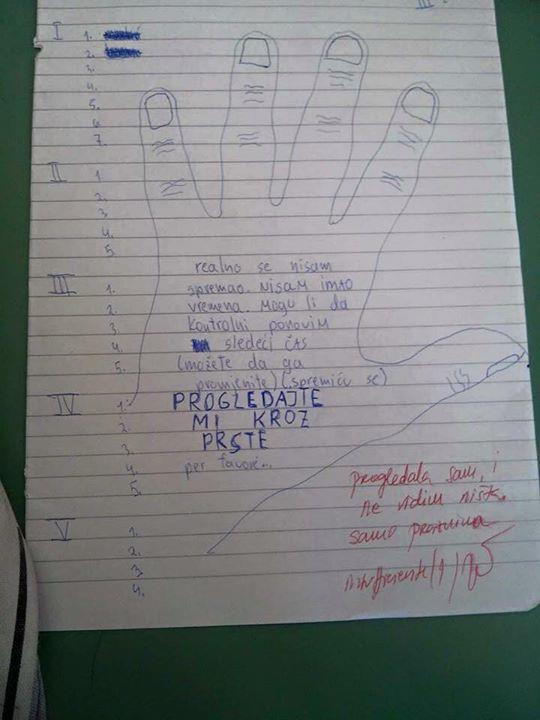 III
I
1.
2.
3.
4.
5.
6
7.
II
1
2.
3
4.
5.
realno se nisam
III
1. spremao. NISAM imao
2. vremena. Mogu li da
3 kontrolni ponovim
4. sledeći čas
5. (možete da ga
promijenite) (spremiću se)
IV
1. PROGLEDAJTE
2. MI KROZ
3. PRSTE
4. per favore...
5.
V
1.
2.
3
4.
progledala sam, i
ne vidim ništa,
samo praznina
Insufficiente (1)